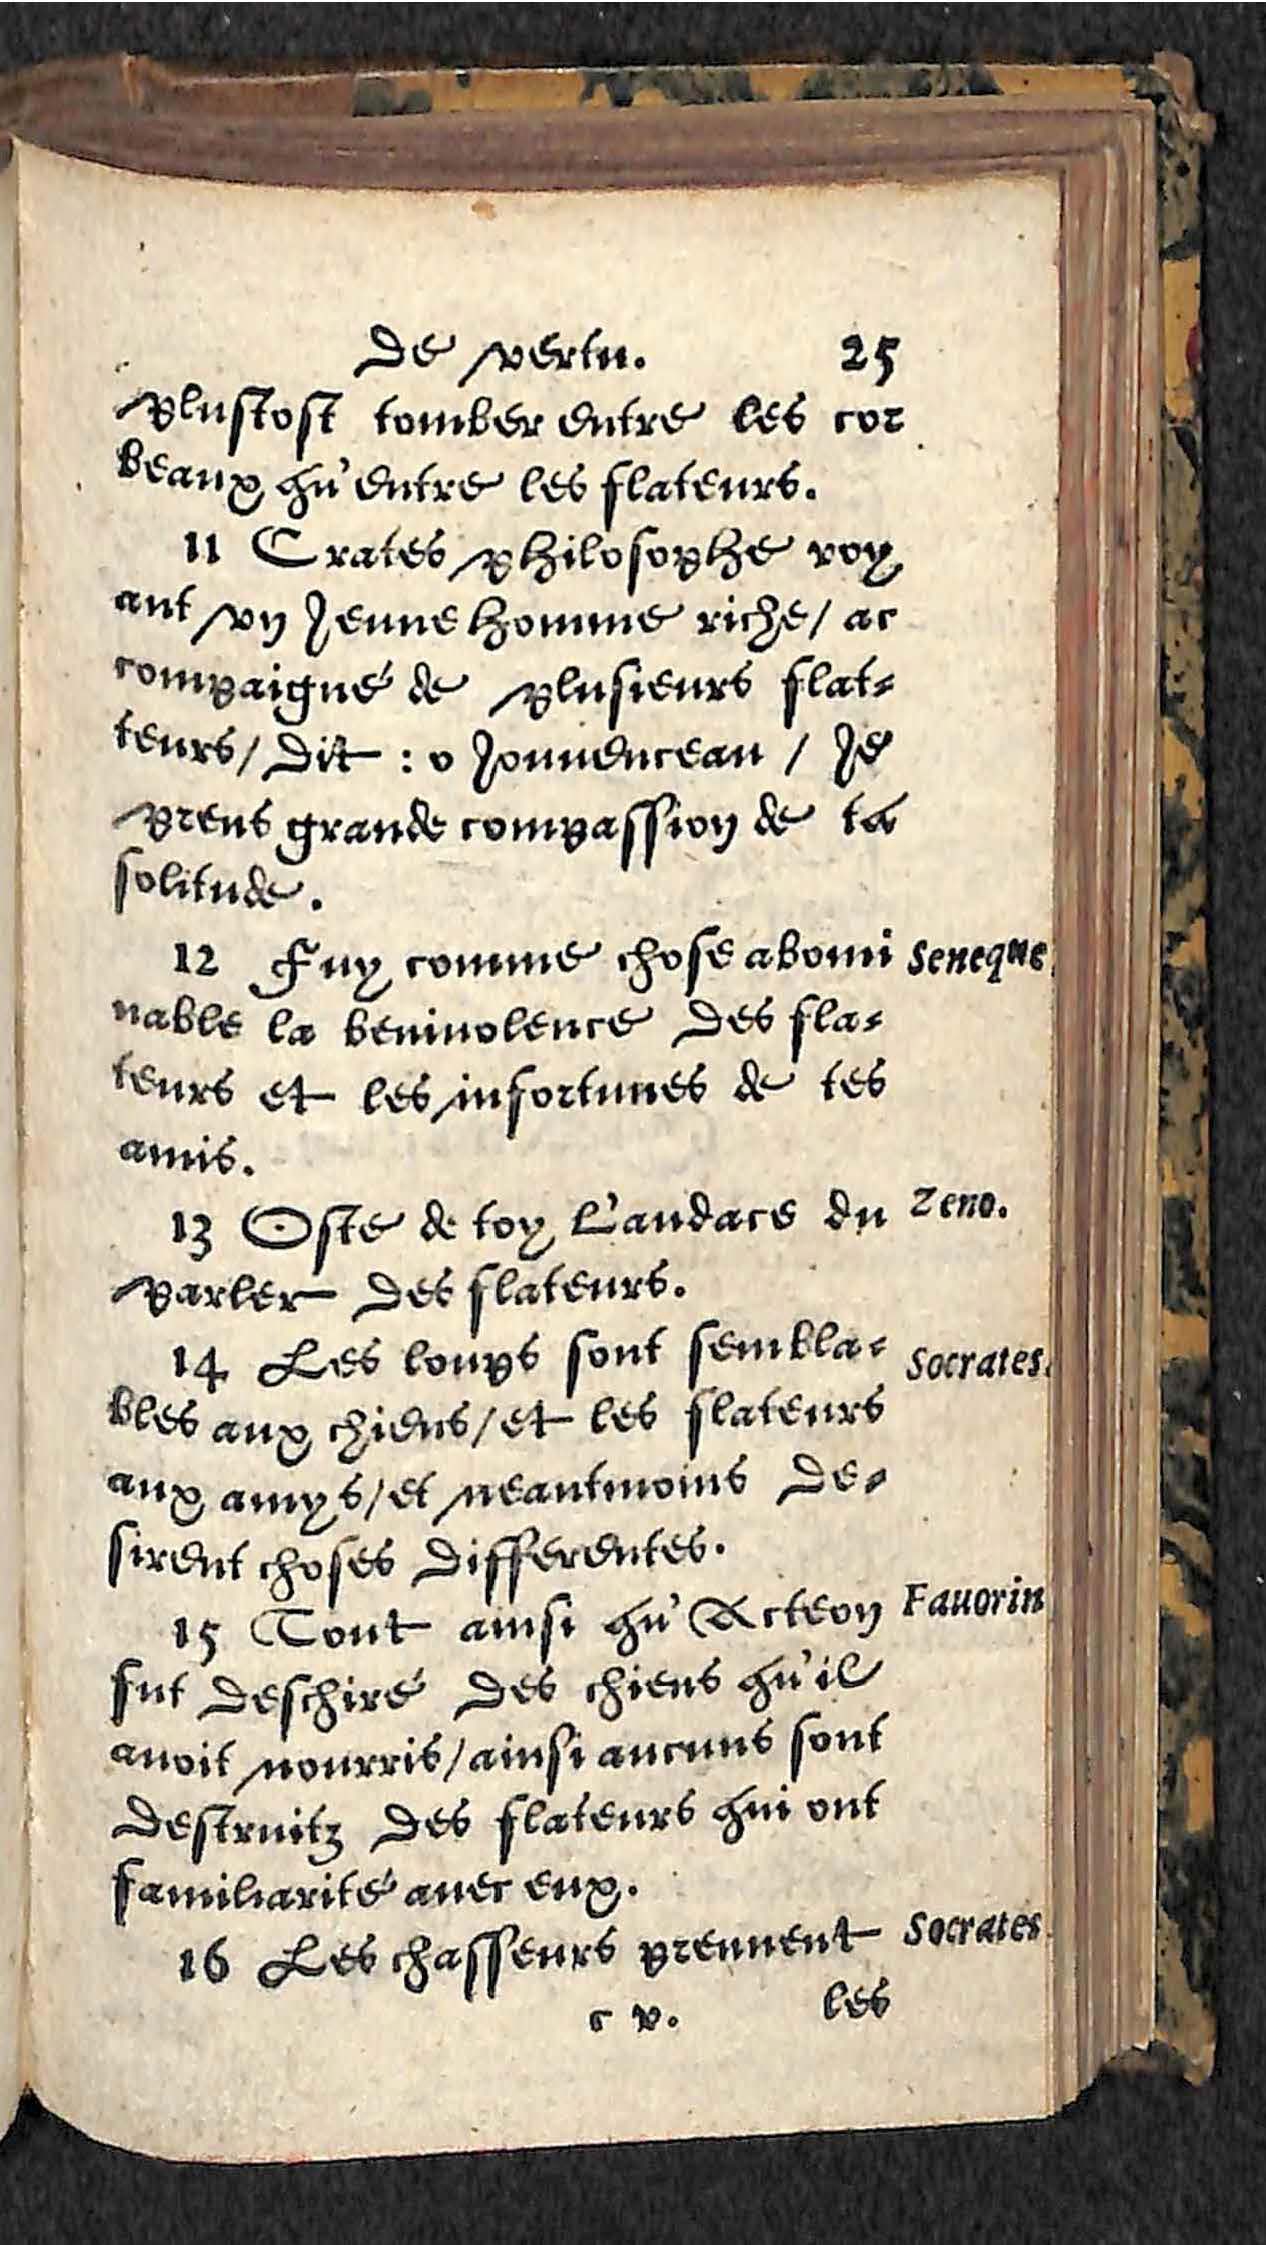 de vertu. 25
plustost tomber entre les cor
beaux qu'entre les flateurs.
11 Crates philosophe voy
ant vn jeune homme riche/ ac
compaigné de plusieurs flat-
teurs/ dit : o jouuenceau / je
prens grande compassion de ta
solitude.
12 Fuy comme chose abomi
nable la beniuolence des fla-
teurs et les infortunes de tes
amis.
Seneque.
13 Oste de toy l'audace du
parler des flateurs.
Zeno.
14 Les loups sont sembla-
bles aux chiens/ et les flateurs
aux amys/ et neantmoins de-
sirent choses differentes.
Socrates.
15 Tout ainsi qu'Acteon
fut deschiré des chiens qu'il
auoit nourris/ ainsi aucuns sont
destruitz des flateurs qui ont
familiarité auec eux.
Fauorin
16 Les chasseurs prennent
Socrates.
c v. les